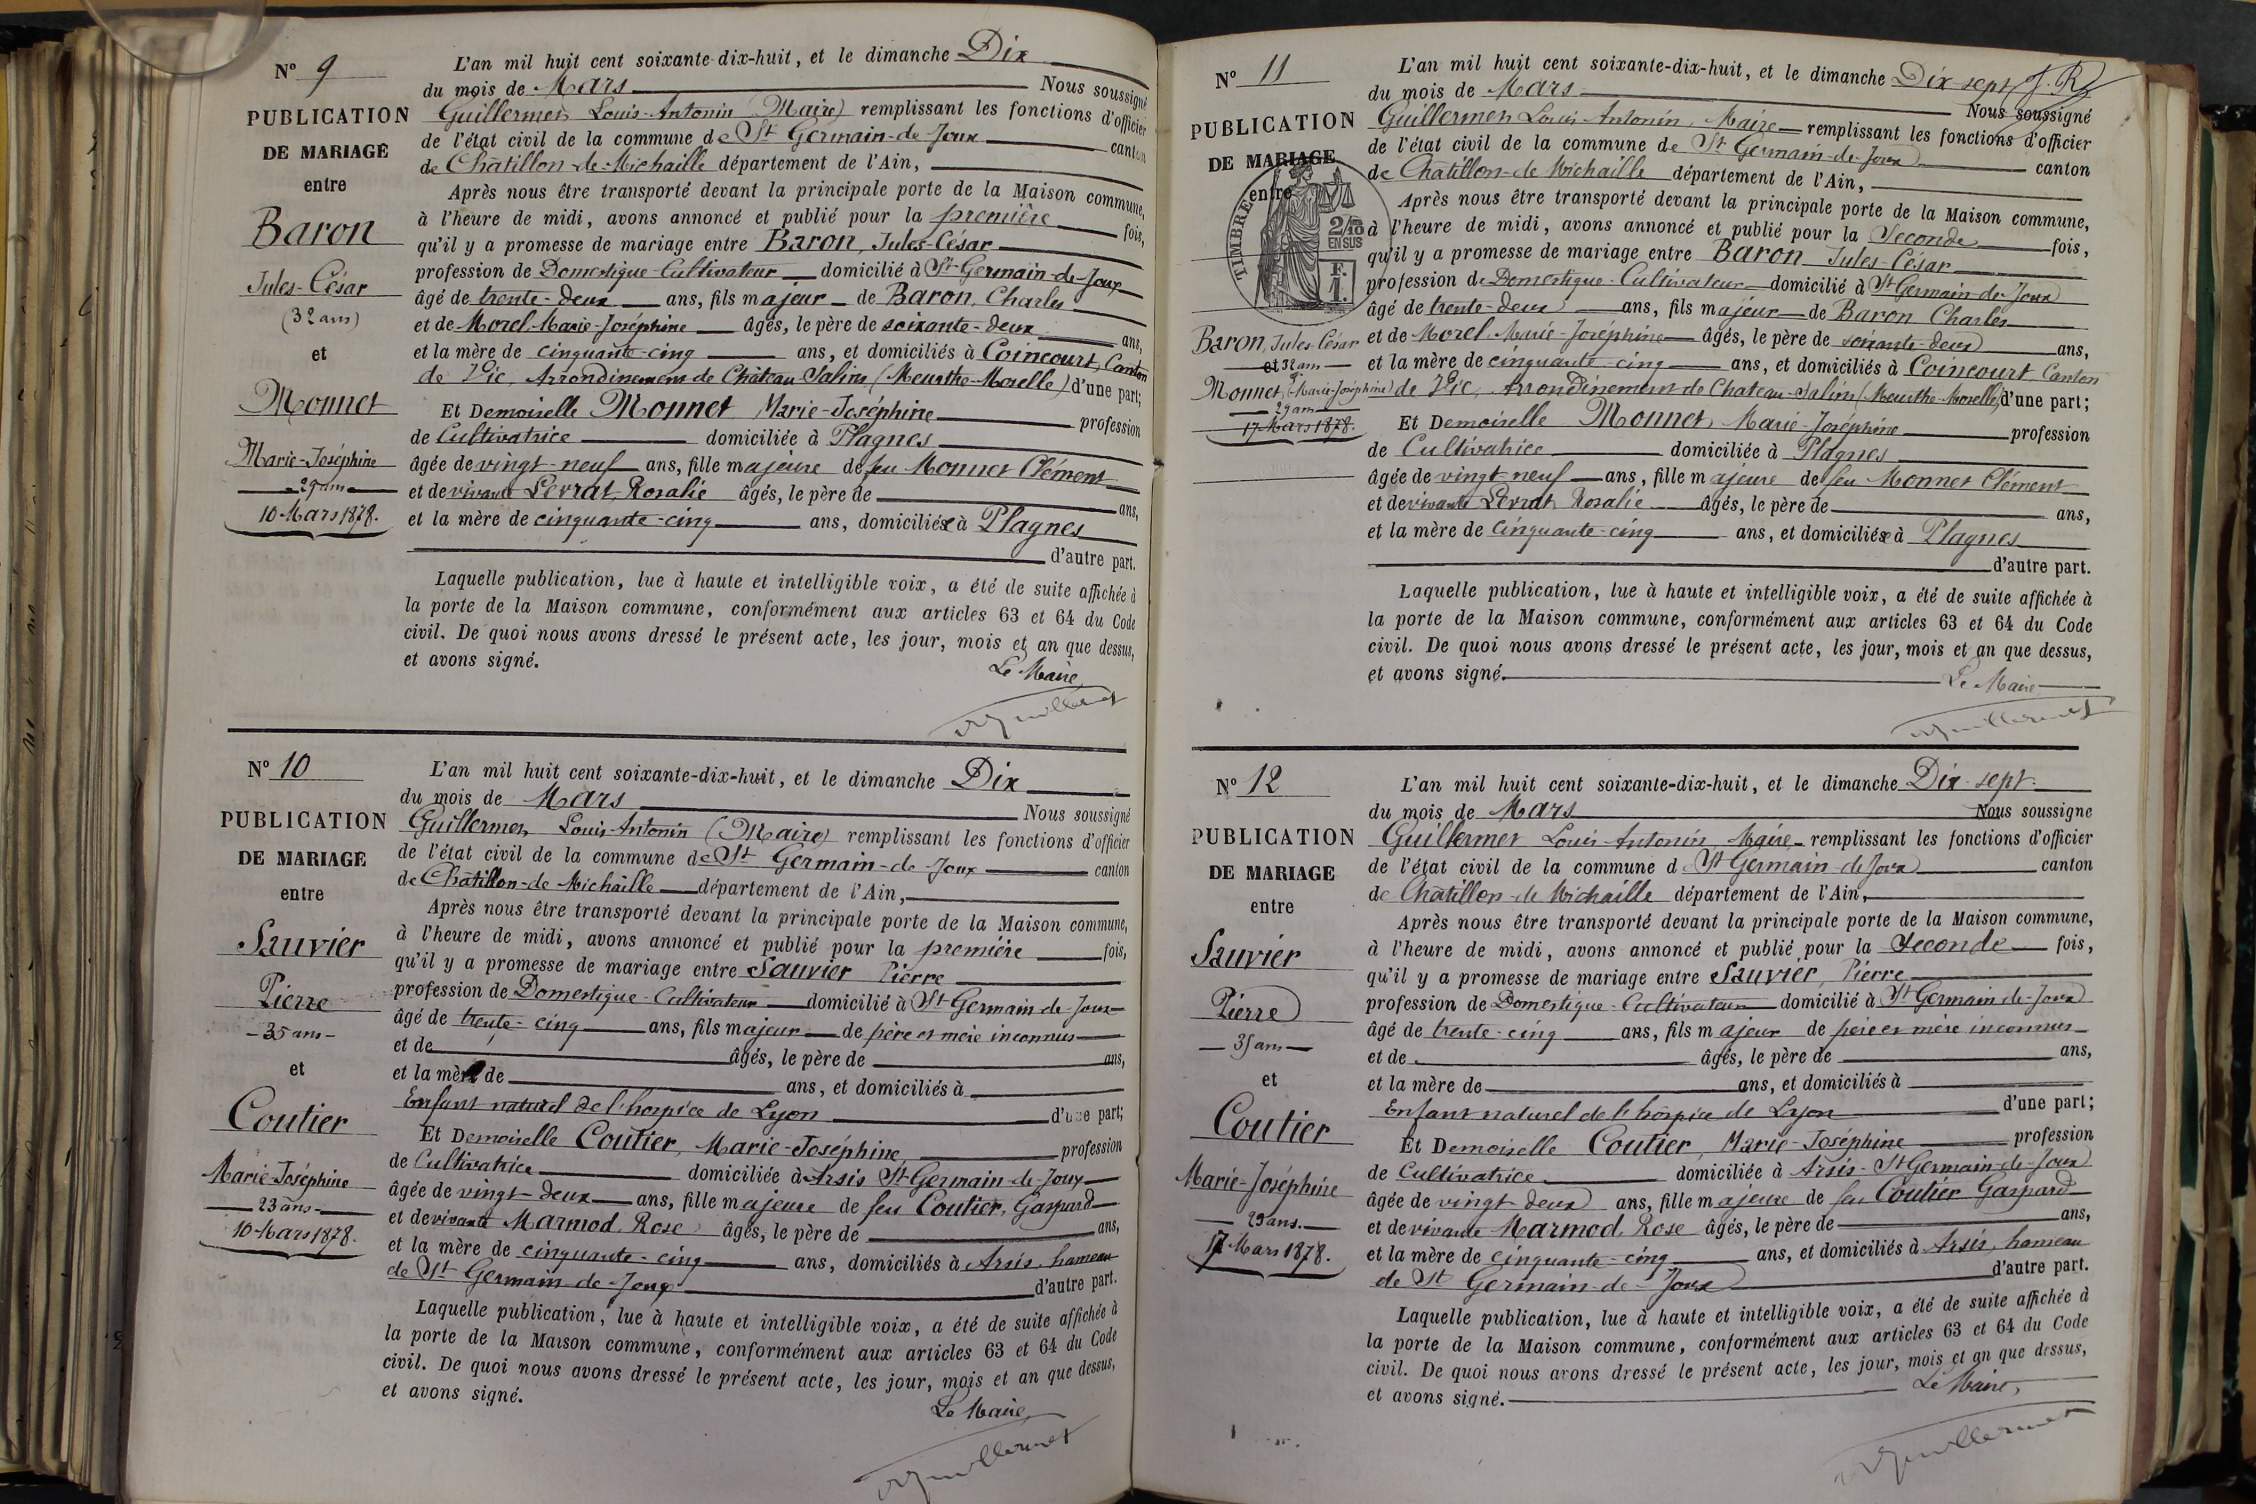 N° 9
PUBLICATION
DE MARIAGE
entre
Baron
Jules-César
(32 ans)
et
Monnet
Marie-Joséphine
29 ans
10 Mars 1878.
L'an mil huit cent soixante-dix-huit, et le dimanche Dix
du mois de Mars Nous soussigné
Guillermet Louis-Antonin (Maire) remplissant les fonctions d'officier
de l'état civil de la commune de St Germain-de-Joux canton
de Châtillon-de-Michaille département de l'Ain,
Après nous être transporté devant la principale porte de la Maison commune,
à l'heure de midi, avons annoncé et publié pour la première fois,
qu'il y a promesse de mariage entre Baron, Jules-César
profession de Domestique-Cultivateur domicilié à St-Germain-de-Joux
âgé de trente-deux ans, fils majeur de Baron, Charles
et de Morel Marie-Joséphine âgés, le père de soixante-deux ans,
et la mère de cinquante-cinq ans, et domiciliés à Coincourt, Canton
de Vic, Arrondinement de Château-Salins (Meurthe-Moselle) d'une part;
Et Demoiselle Monnet Marie-Joséphine profession
de Cultivatrice domiciliée à Plagnes
âgée de vingt-neuf ans, fille majeure de feu Monnet Clément
et de vivante Perrat Rosalie âgés, le père de ans,
et la mère de cinquante-cinq ans, domiciliée à Plagnes
d'autre part.
Laquelle publication, lue à haute et intelligible voix, a été de suite affichée à
la porte de la Maison commune, conformément aux articles 63 et 64 du Code
civil. De quoi nous avons dressé le présent acte, les jour, mois et an que dessus,
et avons signé.
Le Maire
Guillermet
N° 10
PUBLICATION
DE MARIAGE
entre
Sauvier
Pierre
35 ans
et
Coutier
Marie-Joséphine
23 ans
10 Mars 1878.
L'an mil huit cent soixante-dix-huit, et le dimanche Dix
du mois de Mars Nous soussigné
Guillermet Louis-Antonin (Maire) remplissant les fonctions d'officier
de l'état civil de la commune de St Germain-de-Joux canton
de Châtillon-de-Michaille département de l'Ain,
Après nous être transporté devant la principale porte de la Maison commune,
à l'heure de midi, avons annoncé et publié pour la première fois,
qu'il y a promesse de mariage entre Sauvier Pierre
profession de Domestique-Cultivateur domicilié à St-Germain-de-Joux
âgé de trente-cinq ans, fils majeur de père et mère inconnus
et de âgés, le père de ans,
et la mère de ans, et domiciliés à
Enfant naturel de l'hospice de Lyon d'une part;
Et Demoiselle Coutier, Marie-Joséphine, profession
de Cultivatrice domiciliée à Arsis St-Germain-de-Joux
âgée de vingt-deux ans, fille majeure de feu Coutier, Gaspard
et de vivante Marmod, Rose âgés, le père de ans,
et la mère de cinquante-cinq ans, domiciliés à Arsis, hameau
de St Germain-de-Joux d'autre part.
Laquelle publication, lue à haute et intelligible voix, a été de suite affichée à
la porte de la Maison commune, conformément aux articles 63 et 64 du Code
civil. De quoi nous avons dressé le présent acte, les jour, mois et an que dessus,
et avons signé.
Le Maire,
Guillermet
N° 11
PUBLICATION
DE MARIAGE
entre
TIMBRE
2/10
EN SUS
F.
1.
Baron, Jules-César
et 32 ans
et
Monnet (Marie-Joséphine)
29 ans
17 Mars 1878.
L'an mil huit cent soixante-dix-huit, et le dimanche Dix-sept J. R
du mois de Mars Nous soussigné
Guillermet Louis Antonin, Maire remplissant les fonctions d'officier
de l'état civil de la commune de St Germain-de-Joux canton
de Chatillon-de-Michaille département de l'Ain,
Après nous être transporté devant la principale porte de la Maison commune,
à l'heure de midi, avons annoncé et publié pour la Seconde fois,
qu'il y a promesse de mariage entre Baron Jules-César
profession de Domestique-Cultivateur domicilié à St Germain-de-Joux
âgé de trente-deux ans, fils majeur de Baron Charles
et de Morel Marie-Joséphine âgés, le père de soixante-deux ans,
et la mère de cinquante-cinq ans, et domiciliés à Coincourt Canton
de Vic, Arrondinement de Chateau-Salins (Meurthe-Moselle) d'une part;
Et Demoiselle Monnet, Marie-Joséphine profession
de Cultivatrice domiciliée à Plagnes
âgée de vingt-neuf ans, fille majeure de feu Monnet Clément
et de vivante Perrat Rosalie âgés, le père de ans,
et la mère de cinquante-cinq ans, et domiciliée à Plagnes
d'autre part.
Laquelle publication, lue à haute et intelligible voix, a été de suite affichée à
la porte de la Maison commune, conformément aux articles 63 et 64 du Code
civil. De quoi nous avons dressé le présent acte, les jour, mois et an que dessus,
et avons signé.
Le Maire
Guillermet
N° 12
PUBLICATION
DE MARIAGE
entre
Sauvier
Pierre
35 ans
et
Coutier
Marie-Joséphine
23 ans.
17 Mars 1878.
L'an mil huit cent soixante-dix-huit, et le dimanche Dix-sept
du mois de Mars Nous soussigné
Guillermet Louis Antonin, Maire remplissant les fonctions d'officier
de l'état civil de la commune d St Germain-de-Joux canton
de Châtillon-de-Michaille département de l'Ain,
Après nous être transporté devant la principale porte de la Maison commune,
à l'heure de midi, avons annoncé et publié pour la Seconde fois,
qu'il y a promesse de mariage entre Sauvier, Pierre
profession de Domestique-Cultivateur domicilié à St Germain-de-Joux
âgé de trente-cinq ans, fils majeur de père et mère inconnus
et de âgés, le père de ans,
et la mère de ans, et domiciliés à
Enfant naturel de l'hospice de Lyon d'une part;
Et Demoiselle Coutier, Marie-Joséphine profession
de Cultivatrice domiciliée à Arsis-St Germain-de-Joux
âgée de vingt deux ans, fille majeure de feu Coutier Gaspard
et de vivante Marmod, Rose âgés, le père de ans,
et la mère de cinquante-cinq ans, et domiciliés à Arsis, hameau
de St Germain-de-Joux d'autre part.
Laquelle publication, lue à haute et intelligible voix, a été de suite affichée à
la porte de la Maison commune, conformément aux articles 63 et 64 du Code
civil. De quoi nous avons dressé le présent acte, les jour, mois et an que dessus,
et avons signé.
Le Maire,
Guillermet